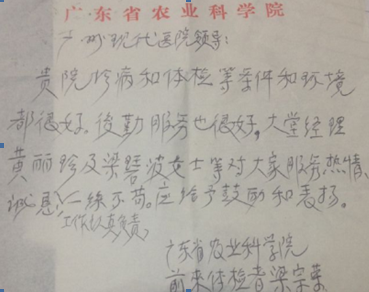 广东省农业科学院
广州现代医院领导:
贵院诊病和体检等条件和环境
都很好。后勤服务也很好,大堂经理
黄丽珍及梁碧波女士等对大家服务热情、
诚恳,一丝不苟。应给予鼓励和表扬。
工作认真负责,
广东省农业科学院
前来体检者梁宗